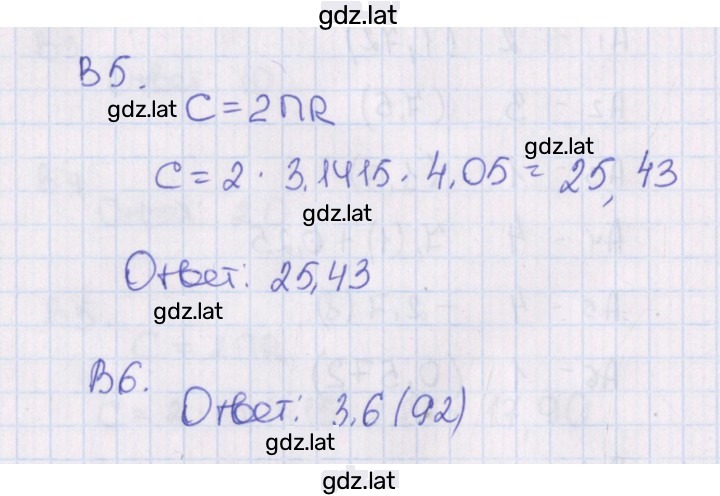 gdz.lat
В5.
gdz.lat C = 2ПR
gdz.lat
C = 2 · 3,1415 · 4,05 = 25,43
gdz.lat
Ответ: 25,43
gdz.lat
В6.
Ответ: 3,6(92)
gdz.lat
gdz.lat